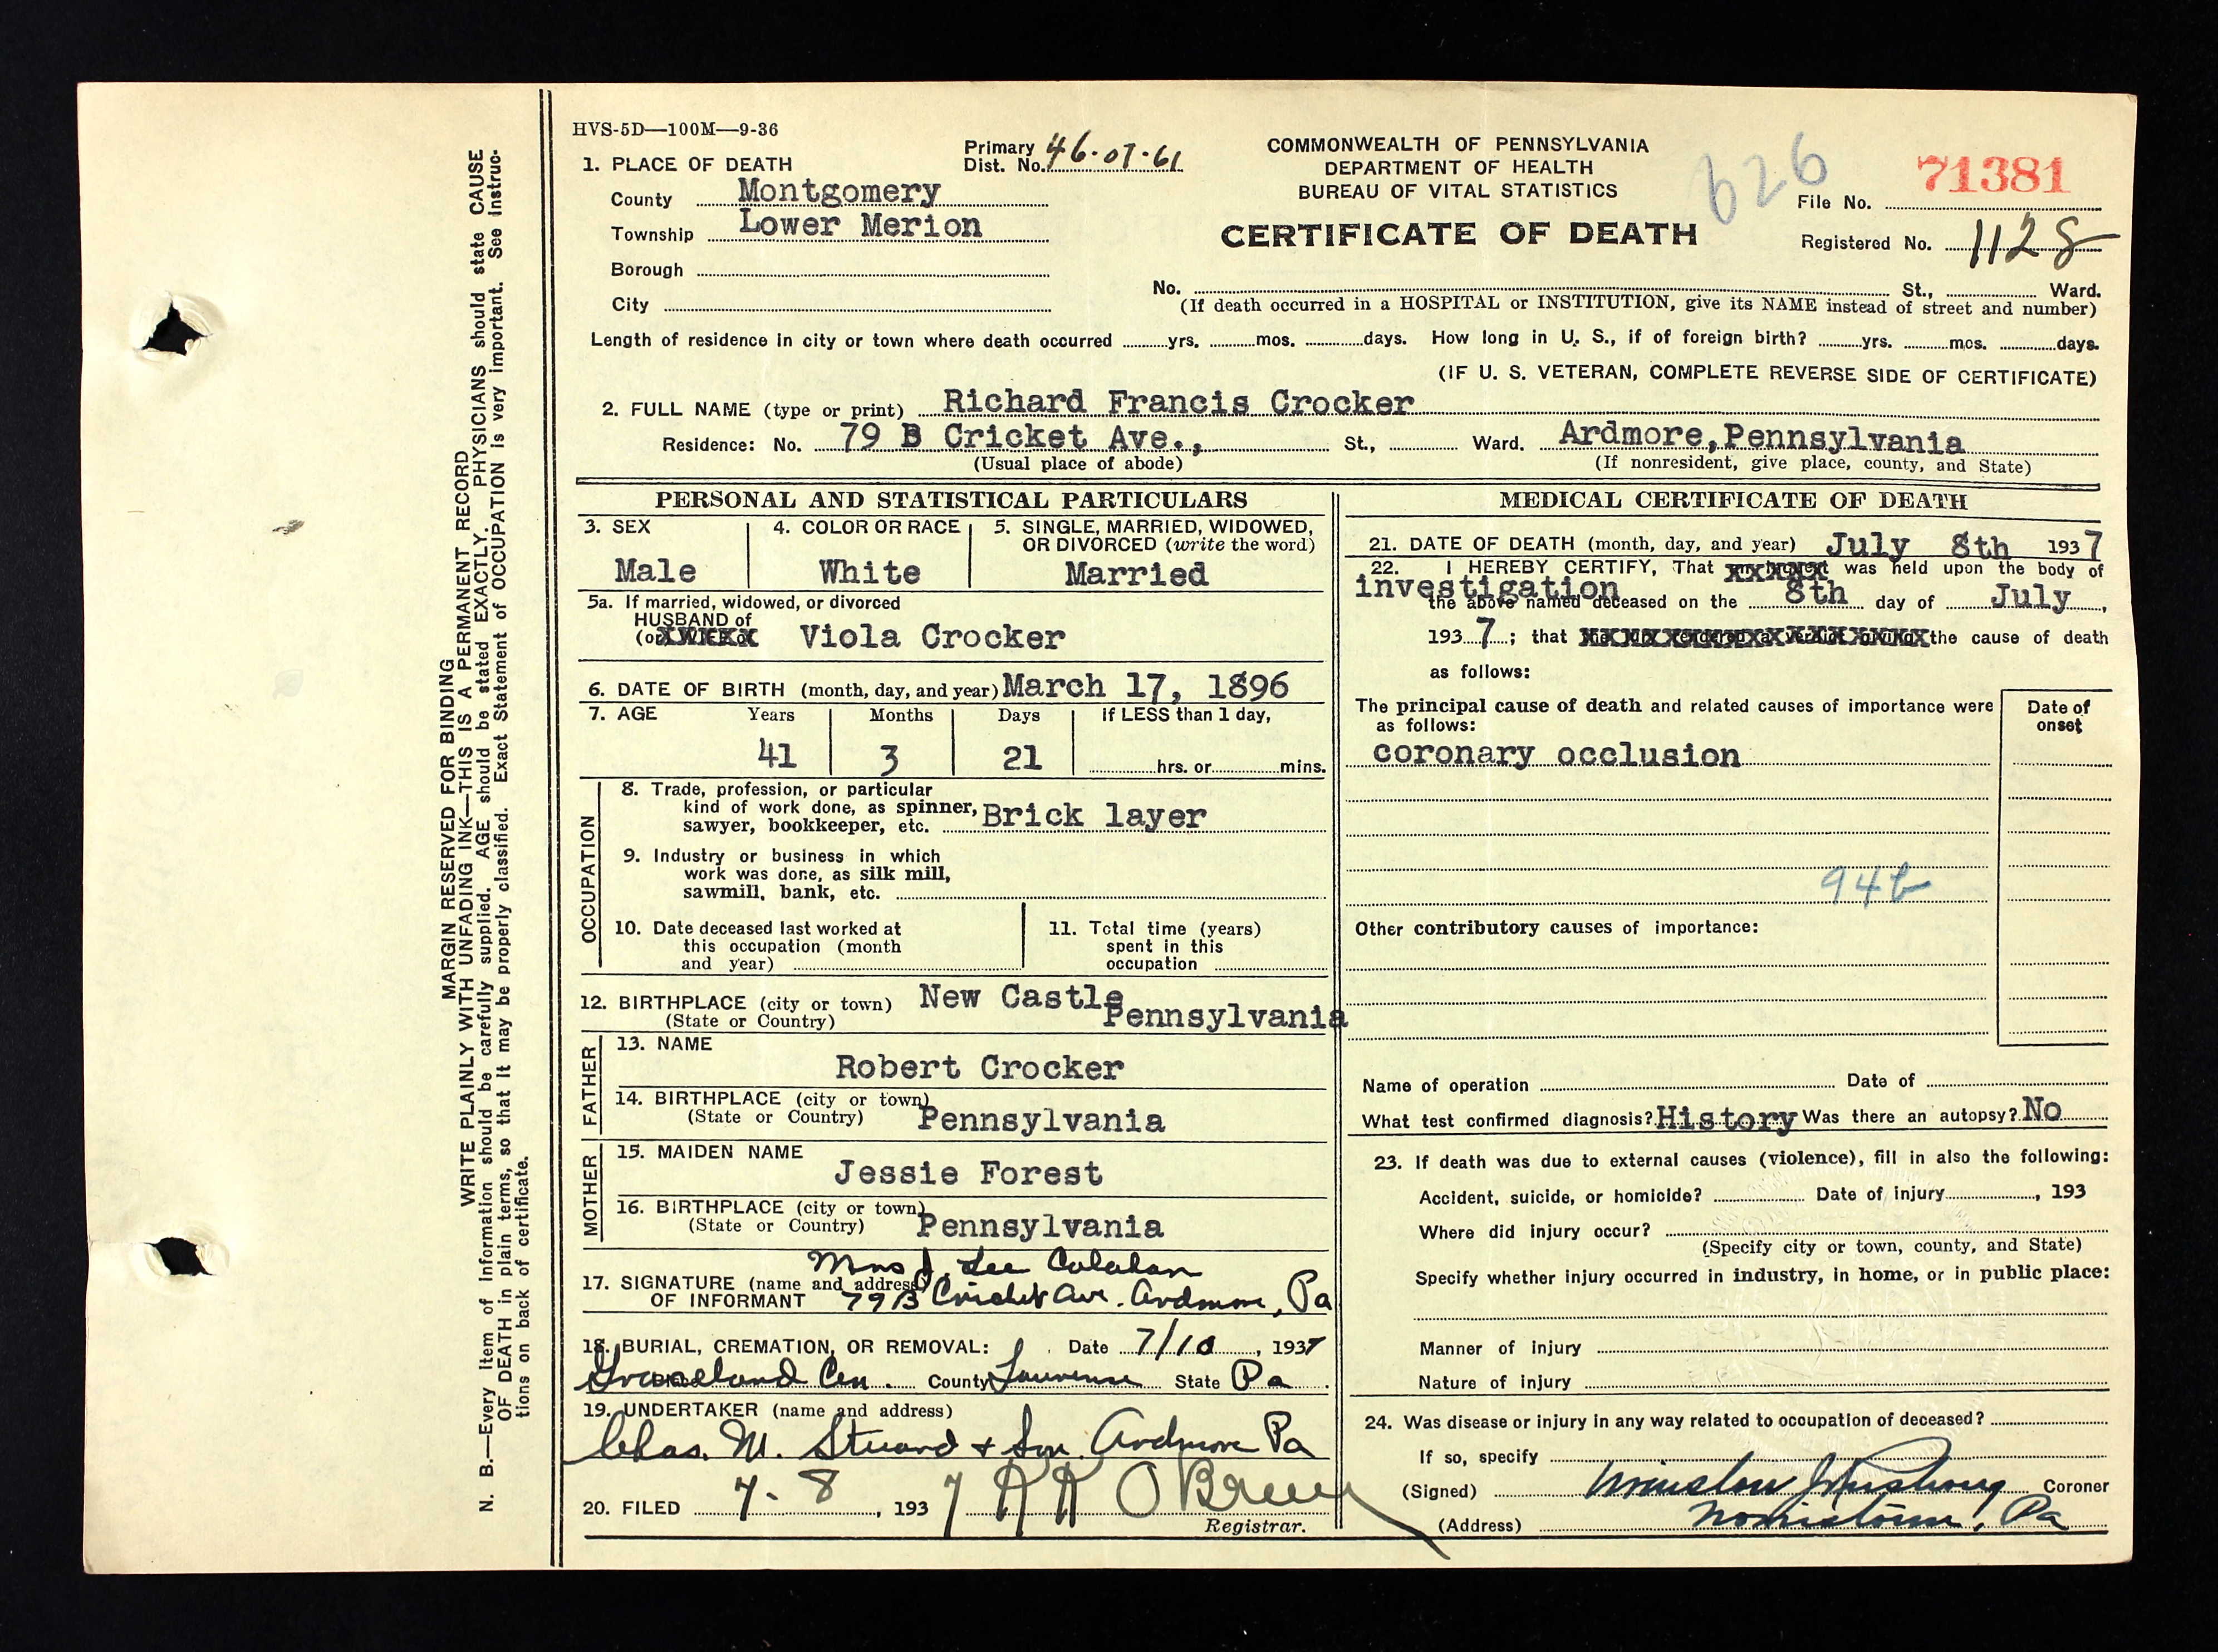 HVS-5D—100M—9-36
1. PLACE OF DEATH
Primary
Dist. No. 46-07-61
County Montgomery
Township Lower Merion
Borough
City
COMMONWEALTH OF PENNSYLVANIA
DEPARTMENT OF HEALTH
BUREAU OF VITAL STATISTICS
CERTIFICATE OF DEATH
626
71381
File No.
Registered No. 1128
No. St., Ward.
(If death occurred in a HOSPITAL or INSTITUTION, give its NAME instead of street and number)
Length of residence in city or town where death occurred yrs. mos. days. How long in U. S., if of foreign birth? yrs. mos. days.
(IF U. S. VETERAN, COMPLETE REVERSE SIDE OF CERTIFICATE)
2. FULL NAME (type or print) Richard Francis Crocker
Residence: No. 79 B Cricket Ave., St., Ward. Ardmore, Pennsylvania
(Usual place of abode) (If nonresident, give place, county, and State)
PERSONAL AND STATISTICAL PARTICULARS
3. SEX
Male
4. COLOR OR RACE
White
5. SINGLE, MARRIED, WIDOWED,
OR DIVORCED (write the word)
Married
5a. If married, widowed, or divorced
HUSBAND of
(or WIFE of Viola Crocker
6. DATE OF BIRTH (month, day, and year) March 17, 1896
7. AGE Years Months Days If LESS than 1 day,
41 3 21 hrs. or mins.
OCCUPATION
8. Trade, profession, or particular
kind of work done, as spinner,
sawyer, bookkeeper, etc. Brick layer
9. Industry or business in which
work was done, as silk mill,
sawmill, bank, etc.
10. Date deceased last worked at
this occupation (month
and year)
11. Total time (years)
spent in this
occupation
12. BIRTHPLACE (city or town) New Castle
(State or Country) Pennsylvania
FATHER
13. NAME
Robert Crocker
14. BIRTHPLACE (city or town)
(State or Country) Pennsylvania
MOTHER
15. MAIDEN NAME
Jessie Forest
16. BIRTHPLACE (city or town)
(State or Country) Pennsylvania
Mrs J. Lee Calahan
17. SIGNATURE (name and address)
OF INFORMANT 79 B Cricket Ave. Ardmore, Pa
18. BURIAL, CREMATION, OR REMOVAL: Date 7/10, 1937
Graceland Cem. County Lawrence State Pa
19. UNDERTAKER (name and address)
Chas. M. Stuard & Son Ardmore Pa
20. FILED 7-8, 1937
Registrar.
MEDICAL CERTIFICATE OF DEATH
21. DATE OF DEATH (month, day, and year) July 8th 1937
22. I HEREBY CERTIFY, That xxxxx was held upon the body of
investigation
the above named deceased on the 8th day of July,
1937; that the cause of death
as follows:
The principal cause of death and related causes of importance were
as follows:
Date of
onset
coronary occlusion
94b
Other contributory causes of importance:
Name of operation Date of
What test confirmed diagnosis? History Was there an autopsy? No
23. If death was due to external causes (violence), fill in also the following:
Accident, suicide, or homicide? Date of injury, 193
Where did injury occur?
(Specify city or town, county, and State)
Specify whether injury occurred in industry, in home, or in public place:
Manner of injury
Nature of injury
24. Was disease or injury in any way related to occupation of deceased?
If so, specify
(Signed) Coroner
(Address) Norristown, Pa
MARGIN RESERVED FOR BINDING
WRITE PLAINLY WITH UNFADING INK—THIS IS A PERMANENT RECORD
N. B.—Every item of information should be carefully supplied. AGE should be stated EXACTLY. PHYSICIANS should state CAUSE
OF DEATH in plain terms, so that it may be properly classified. Exact Statement of OCCUPATION is very important. See instruc-
tions on back of certificate.